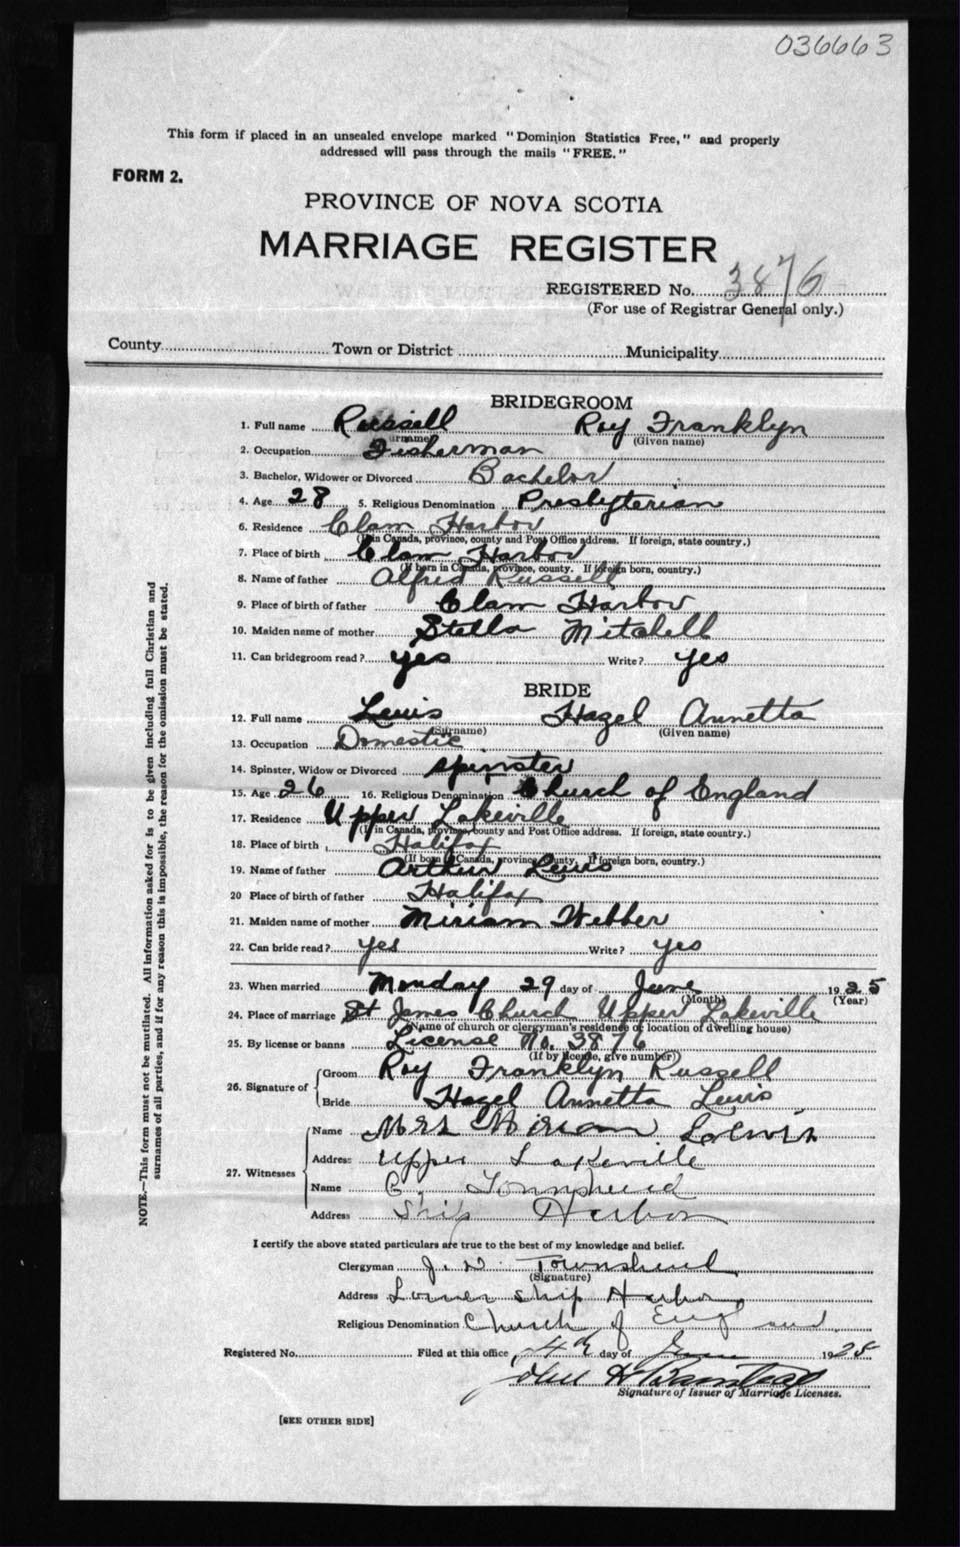 036663
This form if placed in an unsealed envelope marked "Dominion Statistics Free," and properly
addressed will pass through the mails "FREE."
FORM 2.
PROVINCE OF NOVA SCOTIA
MARRIAGE REGISTER
REGISTERED No. 3876
(For use of Registrar General only.)
County Town or District Municipality
BRIDEGROOM
1. Full name Russell Roy Franklyn
(Surname) (Given name)
2. Occupation Fisherman
3. Bachelor, Widower or Divorced Bachelor
4. Age 28 5. Religious Denomination Presbyterian
6. Residence Clam Harbor
(If in Canada, province, county and Post Office address. If foreign, state country.)
7. Place of birth Clam Harbor
(If born in Canada, province, county. If foreign born, country.)
8. Name of father Alfred Russell
9. Place of birth of father Clam Harbor
10. Maiden name of mother Stella Mitchell
11. Can bridegroom read? yes Write? yes
BRIDE
12. Full name Lewis Hazel Annetta
(Surname) (Given name)
13. Occupation Domestic
14. Spinster, Widow or Divorced spinster
15. Age 26 16. Religious Denomination Church of England
17. Residence Upper Lakeville
(If in Canada, province, county and Post Office address. If foreign, state country.)
18. Place of birth Halifax
(If born in Canada, province, county. If foreign born, country.)
19. Name of father Arthur Lewis
20 Place of birth of father Halifax
21. Maiden name of mother Miriam Webber
22. Can bride read? yes Write? yes
23. When married Monday 29 day of June 1925
(Month) (Year)
24. Place of marriage St James Church Upper Lakeville
(Name of church or clergyman's residence or location of dwelling house)
25. By license or banns License No. 3876
(If by license, give number)
26. Signature of Groom Roy Franklyn Russell
Bride Hazel Annetta Lewis
27. Witnesses Name Mrs Miriam Loewis
Address Upper Lakeville
Name Townshend
Address Ship Harbor
I certify the above stated particulars are true to the best of my knowledge and belief.
Clergyman Townshend
(Signature)
Address Lower Ship Harbor
Religious Denomination Church of England
Registered No. Filed at this office, 4th day of 1925
John H
Signature of Issuer of Marriage Licenses.
[SEE OTHER SIDE]
NOTE.—This form must not be mutilated. All information asked for is to be given including full Christian and
surnames of all parties, and if for any reason this is impossible, the reason for the omission must be stated.